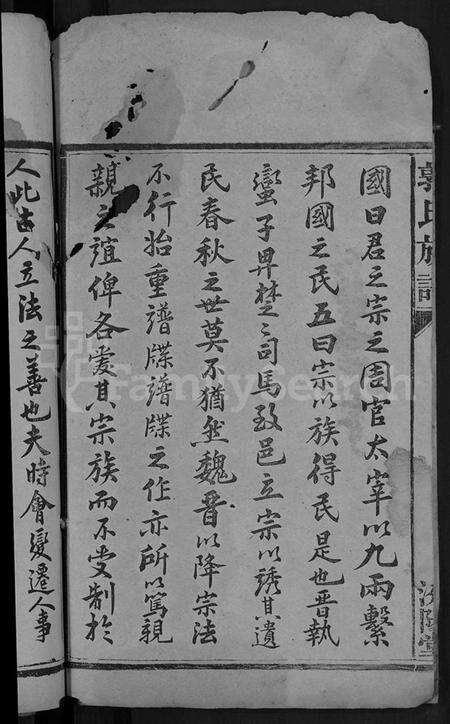 國曰君之宗之周官太宰以九兩繫
邦國之民五曰宗以族得民是也晉執
蠻子畀楚楚司馬致邑立宗以誘其遺
民春秋之世莫不猶然魏晉以降宗法
不行始重譜牒譜牒之作亦所以篤親
親之誼俾各愛其宗族而不受制於
人此古人立法之善也夫時會變遷人事
郭氏族譜
FamilySearch